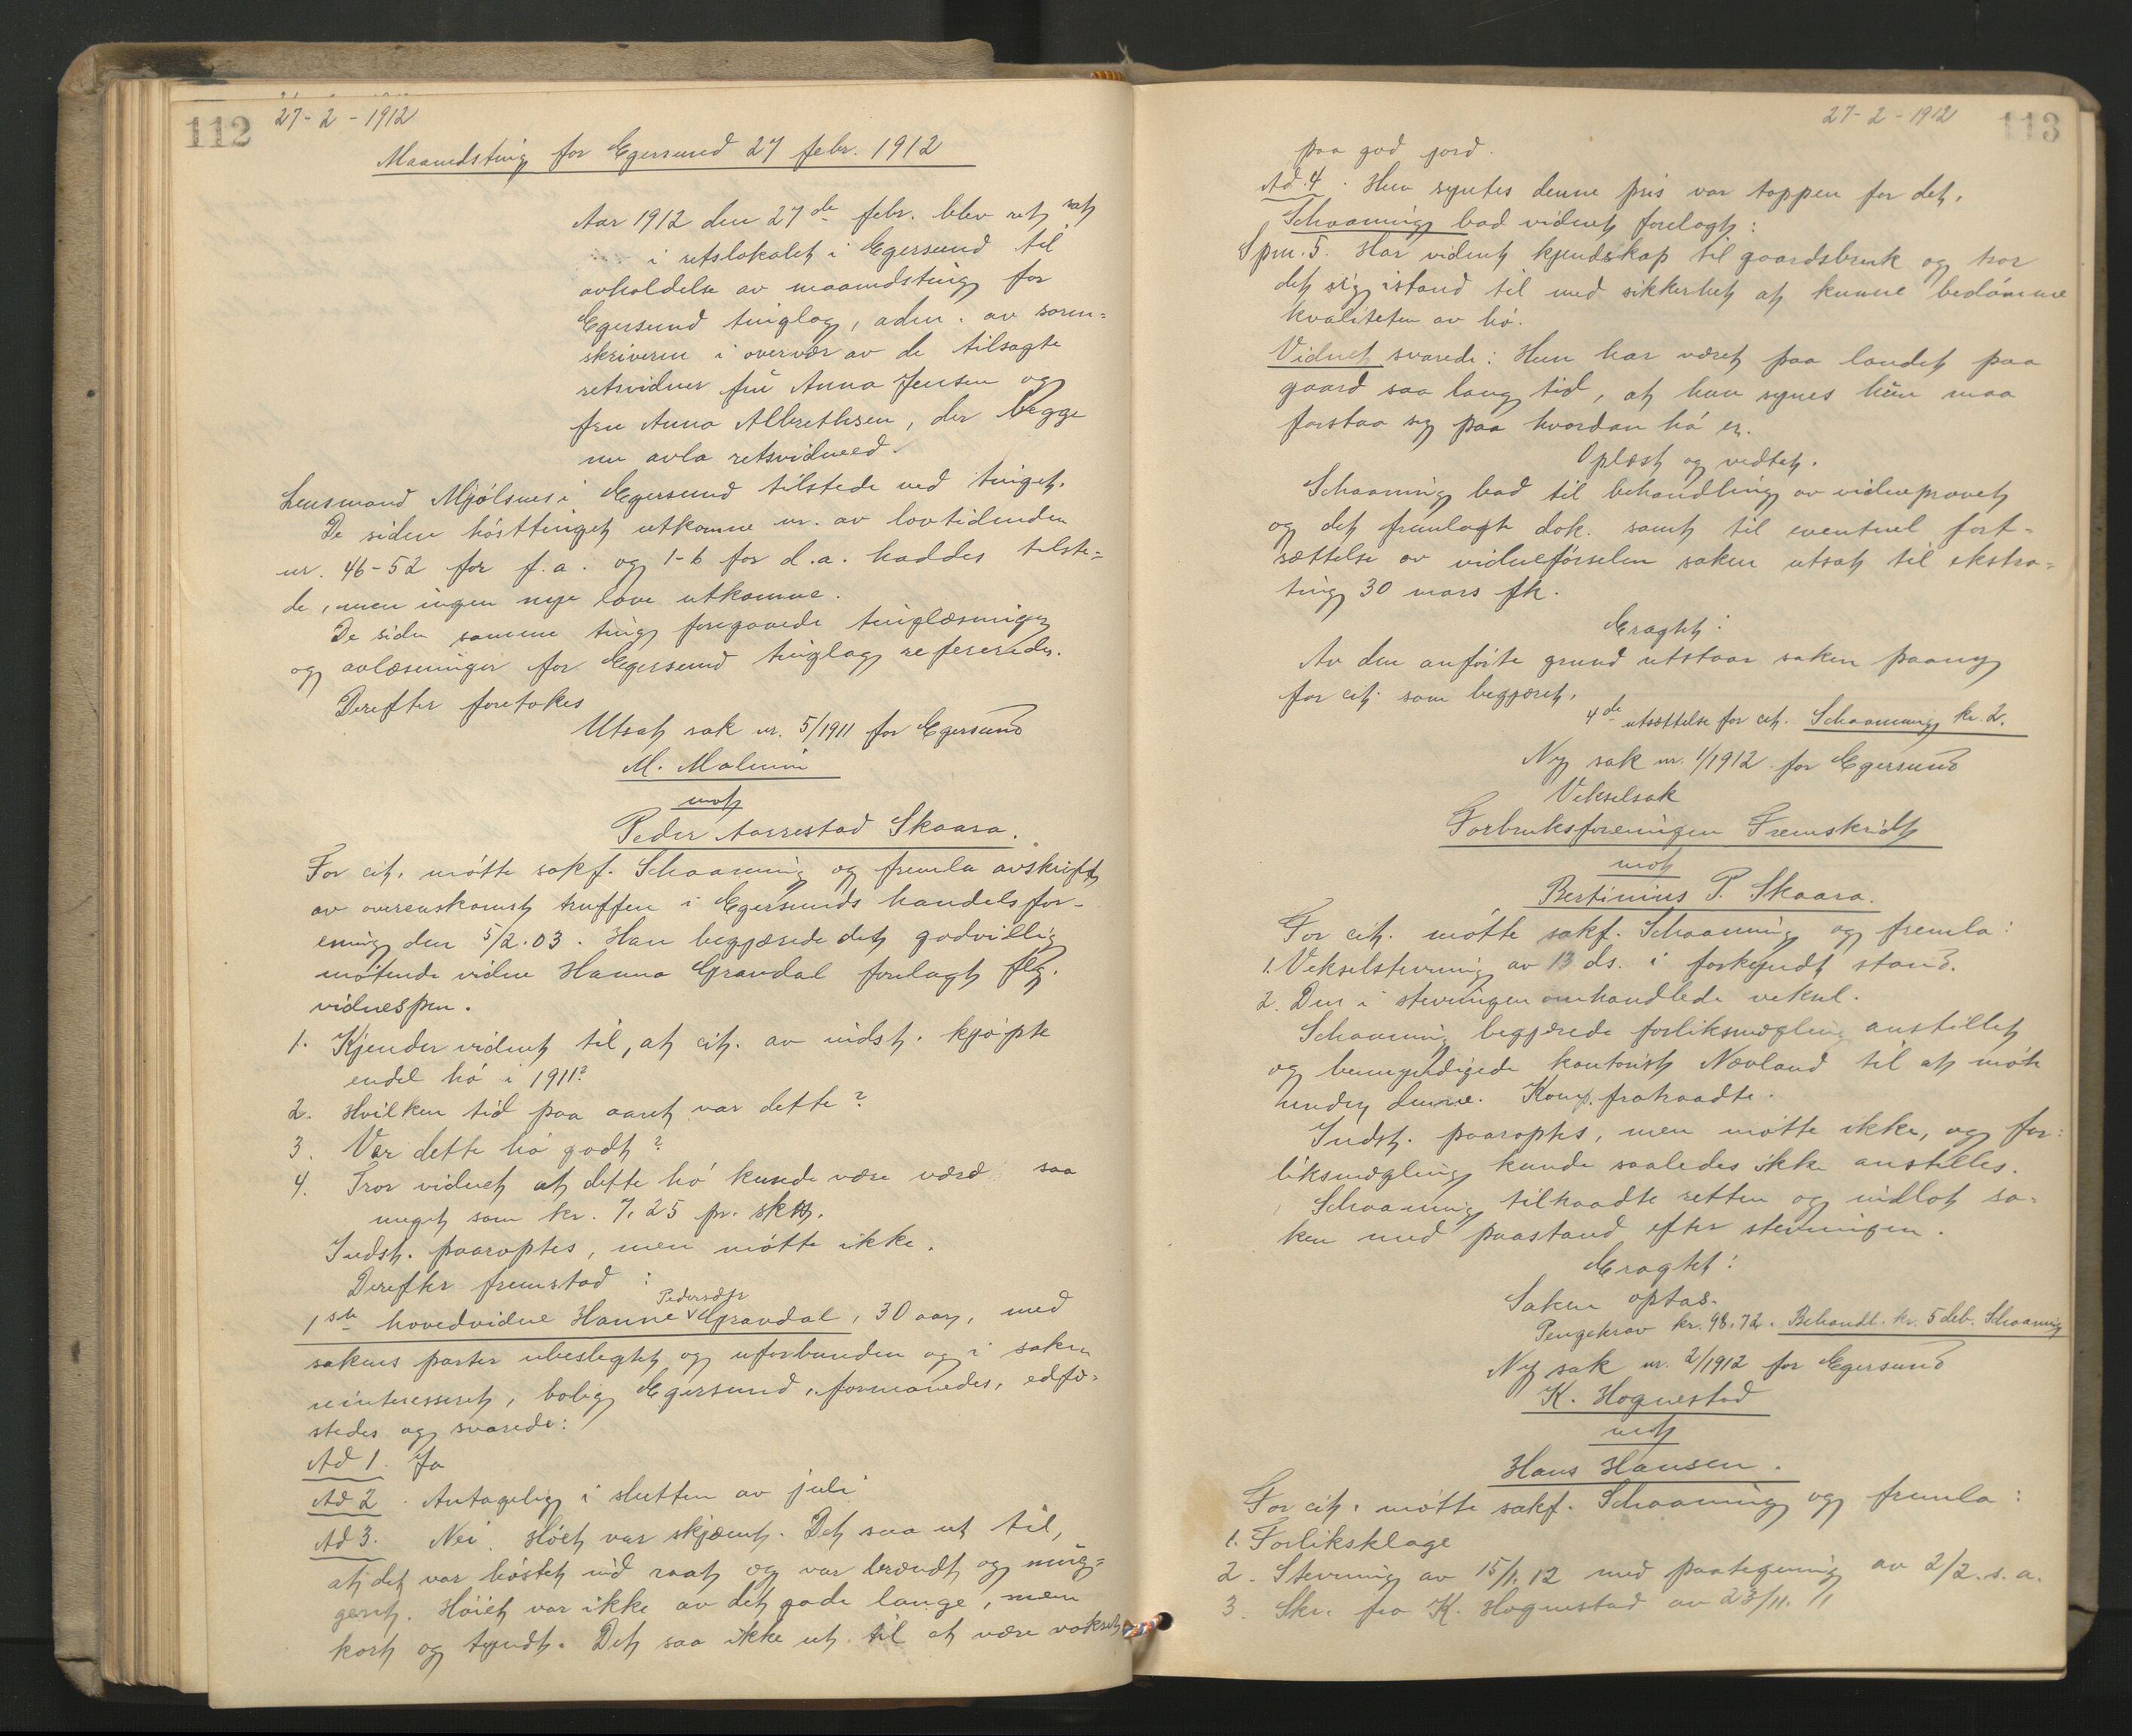 112
27-2-1912
Maanedsting for Egersund 27 febr. 1912
Aar 1912 den 27de febr. blev ret sat
i retslokalet i Egersund til
avholdelse av maanedsting for
Egersund tinglag, adm. av soren-
skriveren i overvær av de tilsagte
retsvidner frü Anna Jensen og
fru Anna Albrethsen, der begge
nu avla retsvidneed.
Lensmand Mjølsnes i Egersund tilstede ved tinget.
De siden høsttinget utkomne nr. av lovtidenden
nr. 46-52 for f.a. og 1-6 for d.a. haddes tilste-
de, men ingen nye love utkomne.
De siden samme ting foregaaede tinglæsninger
og avlæsninger for Egersund tinglag refereredes.
Derefter foretokes
Utsat sak nr. 5/1911 for Egersund
M. Malmin
mot
Peder Aarrestad Skaara.
For cit. møtte sakf. Schaanning og fremla avskrift
av overenskomst truffen i Egersunds handelsfor-
ening den 5/2.03. Han begjærede det godvillig
møtende vidne Hanna Grandal forelagt flg.
vidnespm.
1. Kjender vidnet til, at cit. av indst. kjøpte
endel hø i 1911?
2. Hvilken tid paa aaret var dette?
3. Var dette hø godt?
4. Tror vidnet at dette hø kunde være værd saa
meget som kr. 7,25 pr. sk℔.
Indst. paaroptes, men møtte ikke.
Derefter fremstod:
Pedersdtr
1ste hovedvidne Hanne Grandal, 30 aar, med
sakens parter ubeslegtet og uforbunden og i saken
uinteresseret, bolig Egersund, formanedes, edfæ-
stedes og svarede:
Ad 1. Ja
Ad 2. Antagelig i slutten av juli
Ad 3. Nei. Høiet var skjæmt. Det saa ut til,
at det var høstet ind raat og var brændt og mug-
geret. Høiet var ikke av det gode lange, men
kort og tyndt. Det saa ikke ut til at være vokset
27-2-1912
113
paa god jord.
Ad. 4. Hun syntes denne pris var toppen for det.
Schaanning bad vidnet forelagt:
Spm. 5. Har vidnet kjendskap til gaardsbruk og tror
det sig istand til med sikkerhet at kunne bedømme
kvaliteten av hø.
Vidnet svarede: Hun har været paa landet paa
gaard saa lang tid, at hun synes hün maa
forstaa sig paa hvordan hø er.
Oplæst og vedtat.
Schaanning bad til behandling av vidneprovet
og det fremlagte dok. samt til eventuel fort-
sættelse av vidneførselen saken utsat til ekstra-
ting 30 mars fk.
Eragtet:
Av den anførte grund utstaar saken paany
for cit. som begjæret.
4de utsættelse for cit. Schaanning kr. 2.
Ny sak nr. 1/1912 for Egersund
Vekselsak
Forbruksforeningen Fremskridt
mot
Bertinius P. Skaara.
For cit. møtte sakf. Schaanning og fremla:
1. Vekselstevning av 13 ds. i forkyndt stand.
2. Den i stevningen omhandlede veksel.
Schaanning begjærede forliksmægling anstillet
og bemyndigede kontorist Nævland til at møte
under denne. Komp. frataadte.
Indst. paaroptes, men møtte ikke, og for-
liksmægling kunde saaledes ikke anstilles.
Schaanning tiltraadte retten og indlot sa-
ken med paastand efter stevningen.
Eragtet:
Saken optas.
Pengekrav kr. 98,72. Behandl. kr. 5 deb. Schaanning
Ny sak nr. 2/1912 for Egersund
K. Hognestad
mot
Hans Hansen.
For cit. møtte sakf. Schaanning og fremla:
1. Forliksklage
2. Stevning av 15/1.12 med paategning av 2/2. s.a.
3. Skr. fra K. Hognestad av 23/11.11